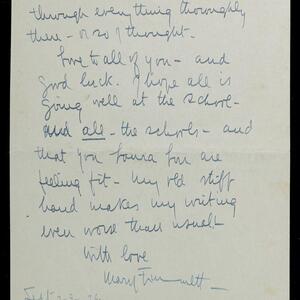 through everything thoroughly
then - or so I thought -
Love to all of you - and
good luck. I hope all is
going well at the school -
and all the schools - and
that you four are
feeling fit - My old stiff
hand makes my writing
even worse than usual -
with love
Mary